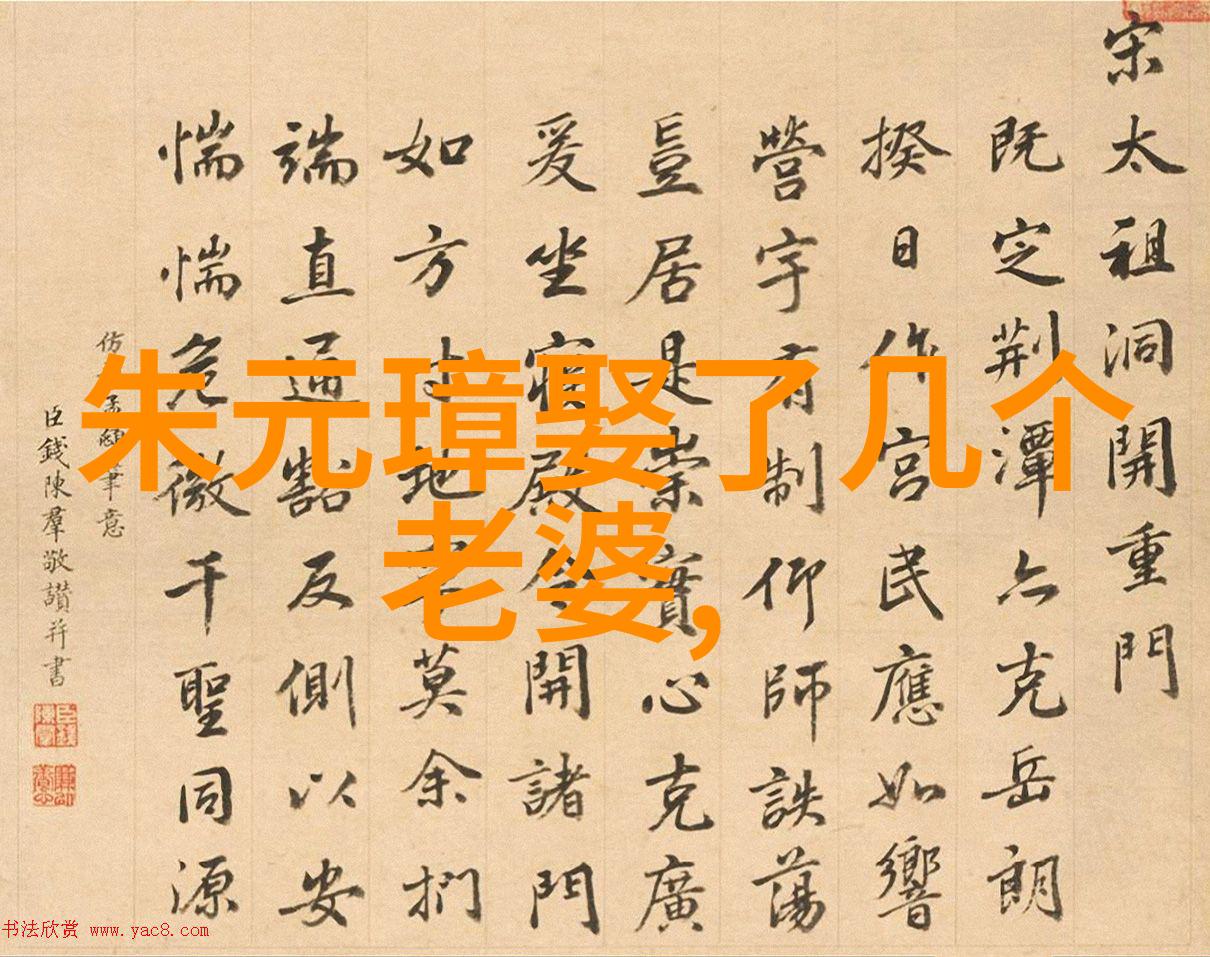 朱元璋娶了几个
老婆,
宋太祖洞開重門
既定荆潭亦克岳朗
揆日作宮民應如響
營宇有制仰師詄蕩
豈居是崇實心克廣
爰坐寢殿令開諸門
如方寸地 莫余捫
端直通豁反側以安
惴惴危微千聖同源
仿 孟頫筆意
臣錢陳羣敬讃并書
书法欣赏 www.yac8.com